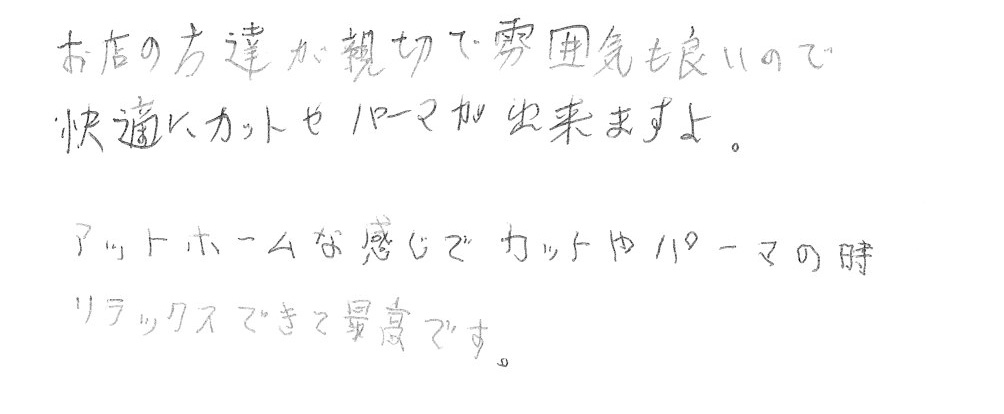 お店の方達が親切で雰囲気も良いので
快適に、カットやパーマが出来ますよ。
アットホームな感じでカットやパーマの時
リラックスできて最高です。